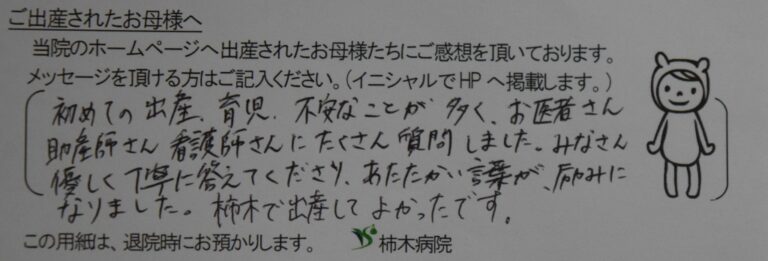 ご出産されたお母様へ
当院のホームページへ出産されたお母様たちにご感想を頂いております。
メッセージを頂ける方はご記入ください。(イニシャルでHPへ掲載します。)
初めての出産、育児、不安なことが多く、お医者さん
助産師さん看護師さんにたくさん質問しました。みなさん
優しく丁寧に答えてくださり、あたたかい言葉が、励みに
なりました。柿木で出産してよかったです。
この用紙は、退院時にお預かりします。 柿木病院